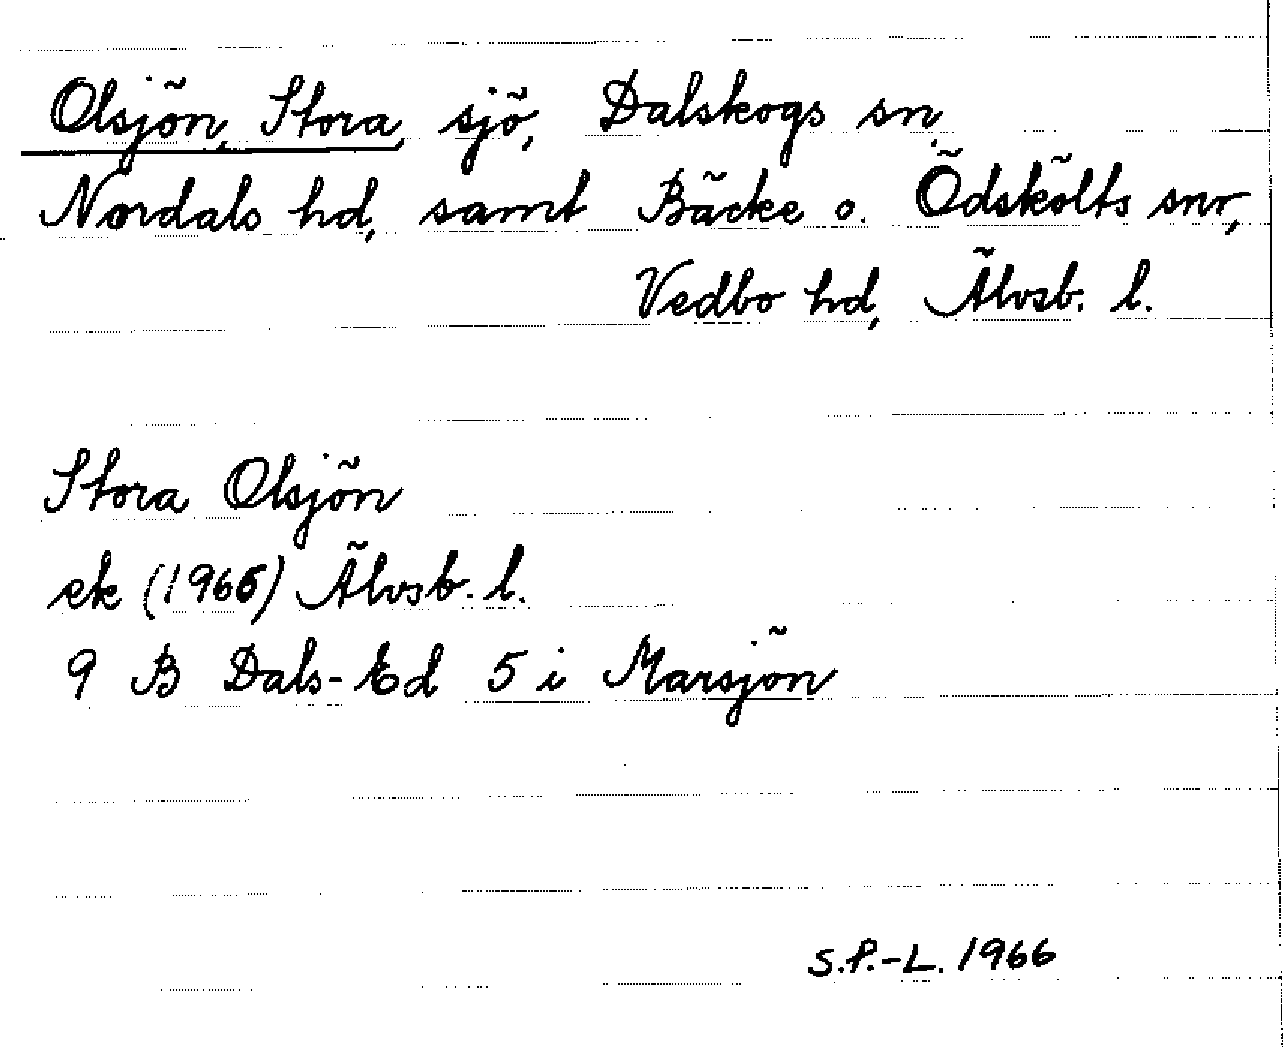 Olsjön, Stora, sjö, Dalskogs sn,
Nordals hd, samt Bäcke o. Ödskölts snr,
Vedbo hd, Älvsb. l.
Stora Olsjön
ek (1965) Älvsb. l.
9 B Dals-Ed 5 i Marsjön
S.P.-L. 1966